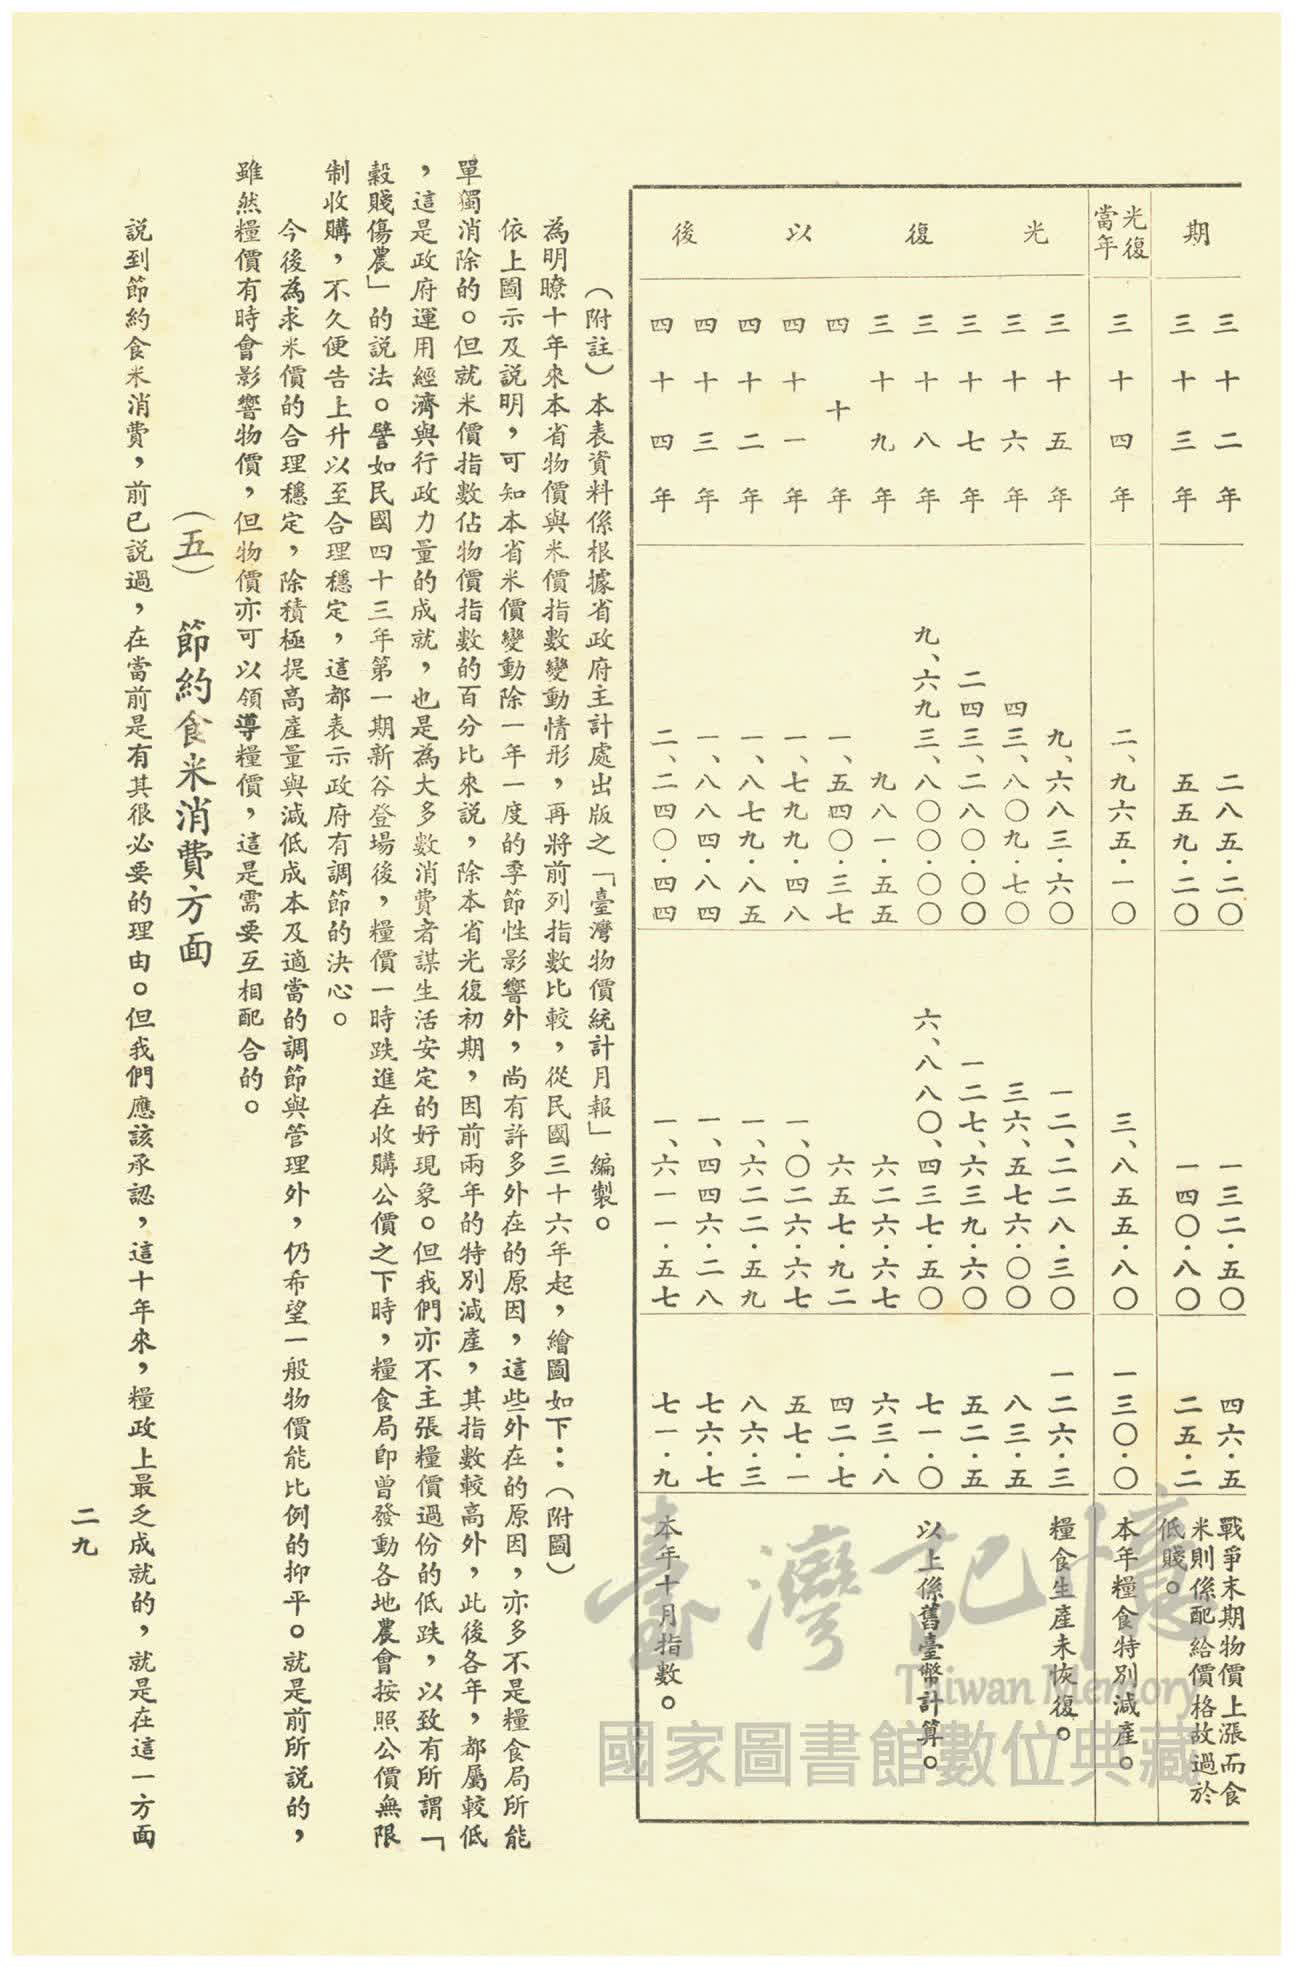 期
三十二年 二八五.二〇 一三二.五〇 四六.五 戰爭末期物價上漲而食
三十三年 五五九.二〇 一四〇.八〇 二五.二 米則係配給價格故過於
低賤。
光復
當年
三十四年 二、九六五.一〇 三、八五五.八〇 一三〇.〇 本年糧食特別減產。
光復以後
三十五年 九、六八三.六〇 一二、二二八.三〇 一二六.三 糧食生產未恢復。
三十六年 四三、八〇九.七〇 三六、五七六.〇〇 八三.五
三十七年 二四三、二八〇.〇〇 一二七、六三九.六〇 五二.五
三十八年 九、六九三、八〇〇.〇〇 六、八八〇、四三七.五〇 七一.〇 以上係舊臺幣計算。
三十九年 九八一.五五 六二六.六七 六三.八
四十年 一、五四〇.三七 六五七.九二 四二.七
四十一年 一、七九九.四八 一、〇二六.六七 五七.一
四十二年 一、八七九.八五 一、六二二.五九 八六.三
四十三年 一、八八四.八四 一、四四六.二八 七六.七
四十四年 二、二四〇.四四 一、六一一.五七 七一.九 本年十月指數。
（附註）本表資料係根據省政府主計處出版之「臺灣物價統計月報」編製。
為明瞭十年來本省物價與米價指數變動情形，再將前列指數比較，從民國三十六年起，繪圖如下：（附圖）
依上圖示及說明，可知本省米價變動除一年一度的季節性影響外，尚有許多外在的原因，這些外在的原因，亦多不是糧食局所能
單獨消除的。但就米價指數佔物價指數的百分比來說，除本省光復初期，因前兩年的特別減產，其指數較高外，此後各年，都屬較低
，這是政府運用經濟與行政力量的成就，也是為大多數消費者謀生活安定的好現象。但我們亦不主張糧價過份的低跌，以致有所謂「
穀賤傷農」的說法。譬如民國四十三年第一期新谷登場後，糧價一時跌進在收購公價之下時，糧食局即曾發動各地農會按照公價無限
制收購，不久便告上升以至合理穩定，這都表示政府有調節的決心。
今後為求米價的合理穩定，除積極提高產量與減低成本及適當的調節與管理外，仍希望一般物價能比例的抑平。就是前所說的，
雖然糧價有時會影響物價，但物價亦可以領導糧價，這是需要互相配合的。
（五） 節約食米消費方面
說到節約食米消費，前已說過，在當前是有其很必要的理由。但我們應該承認，這十年來，糧政上最乏成就的，就是在這一方面
二九
臺灣記憶
Taiwan Memory
國家圖書館數位典藏